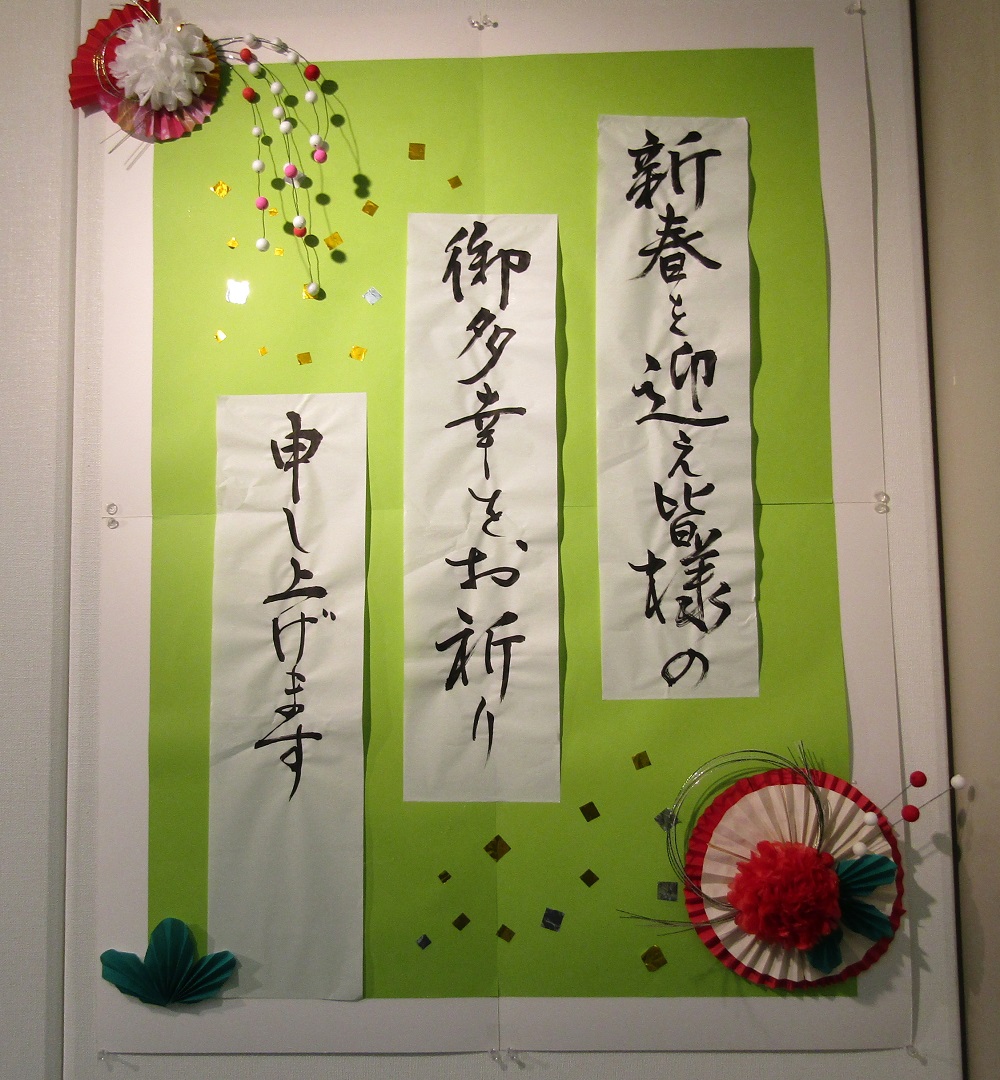 新春を迎え皆様の
御多幸をお祈り
申し上げます